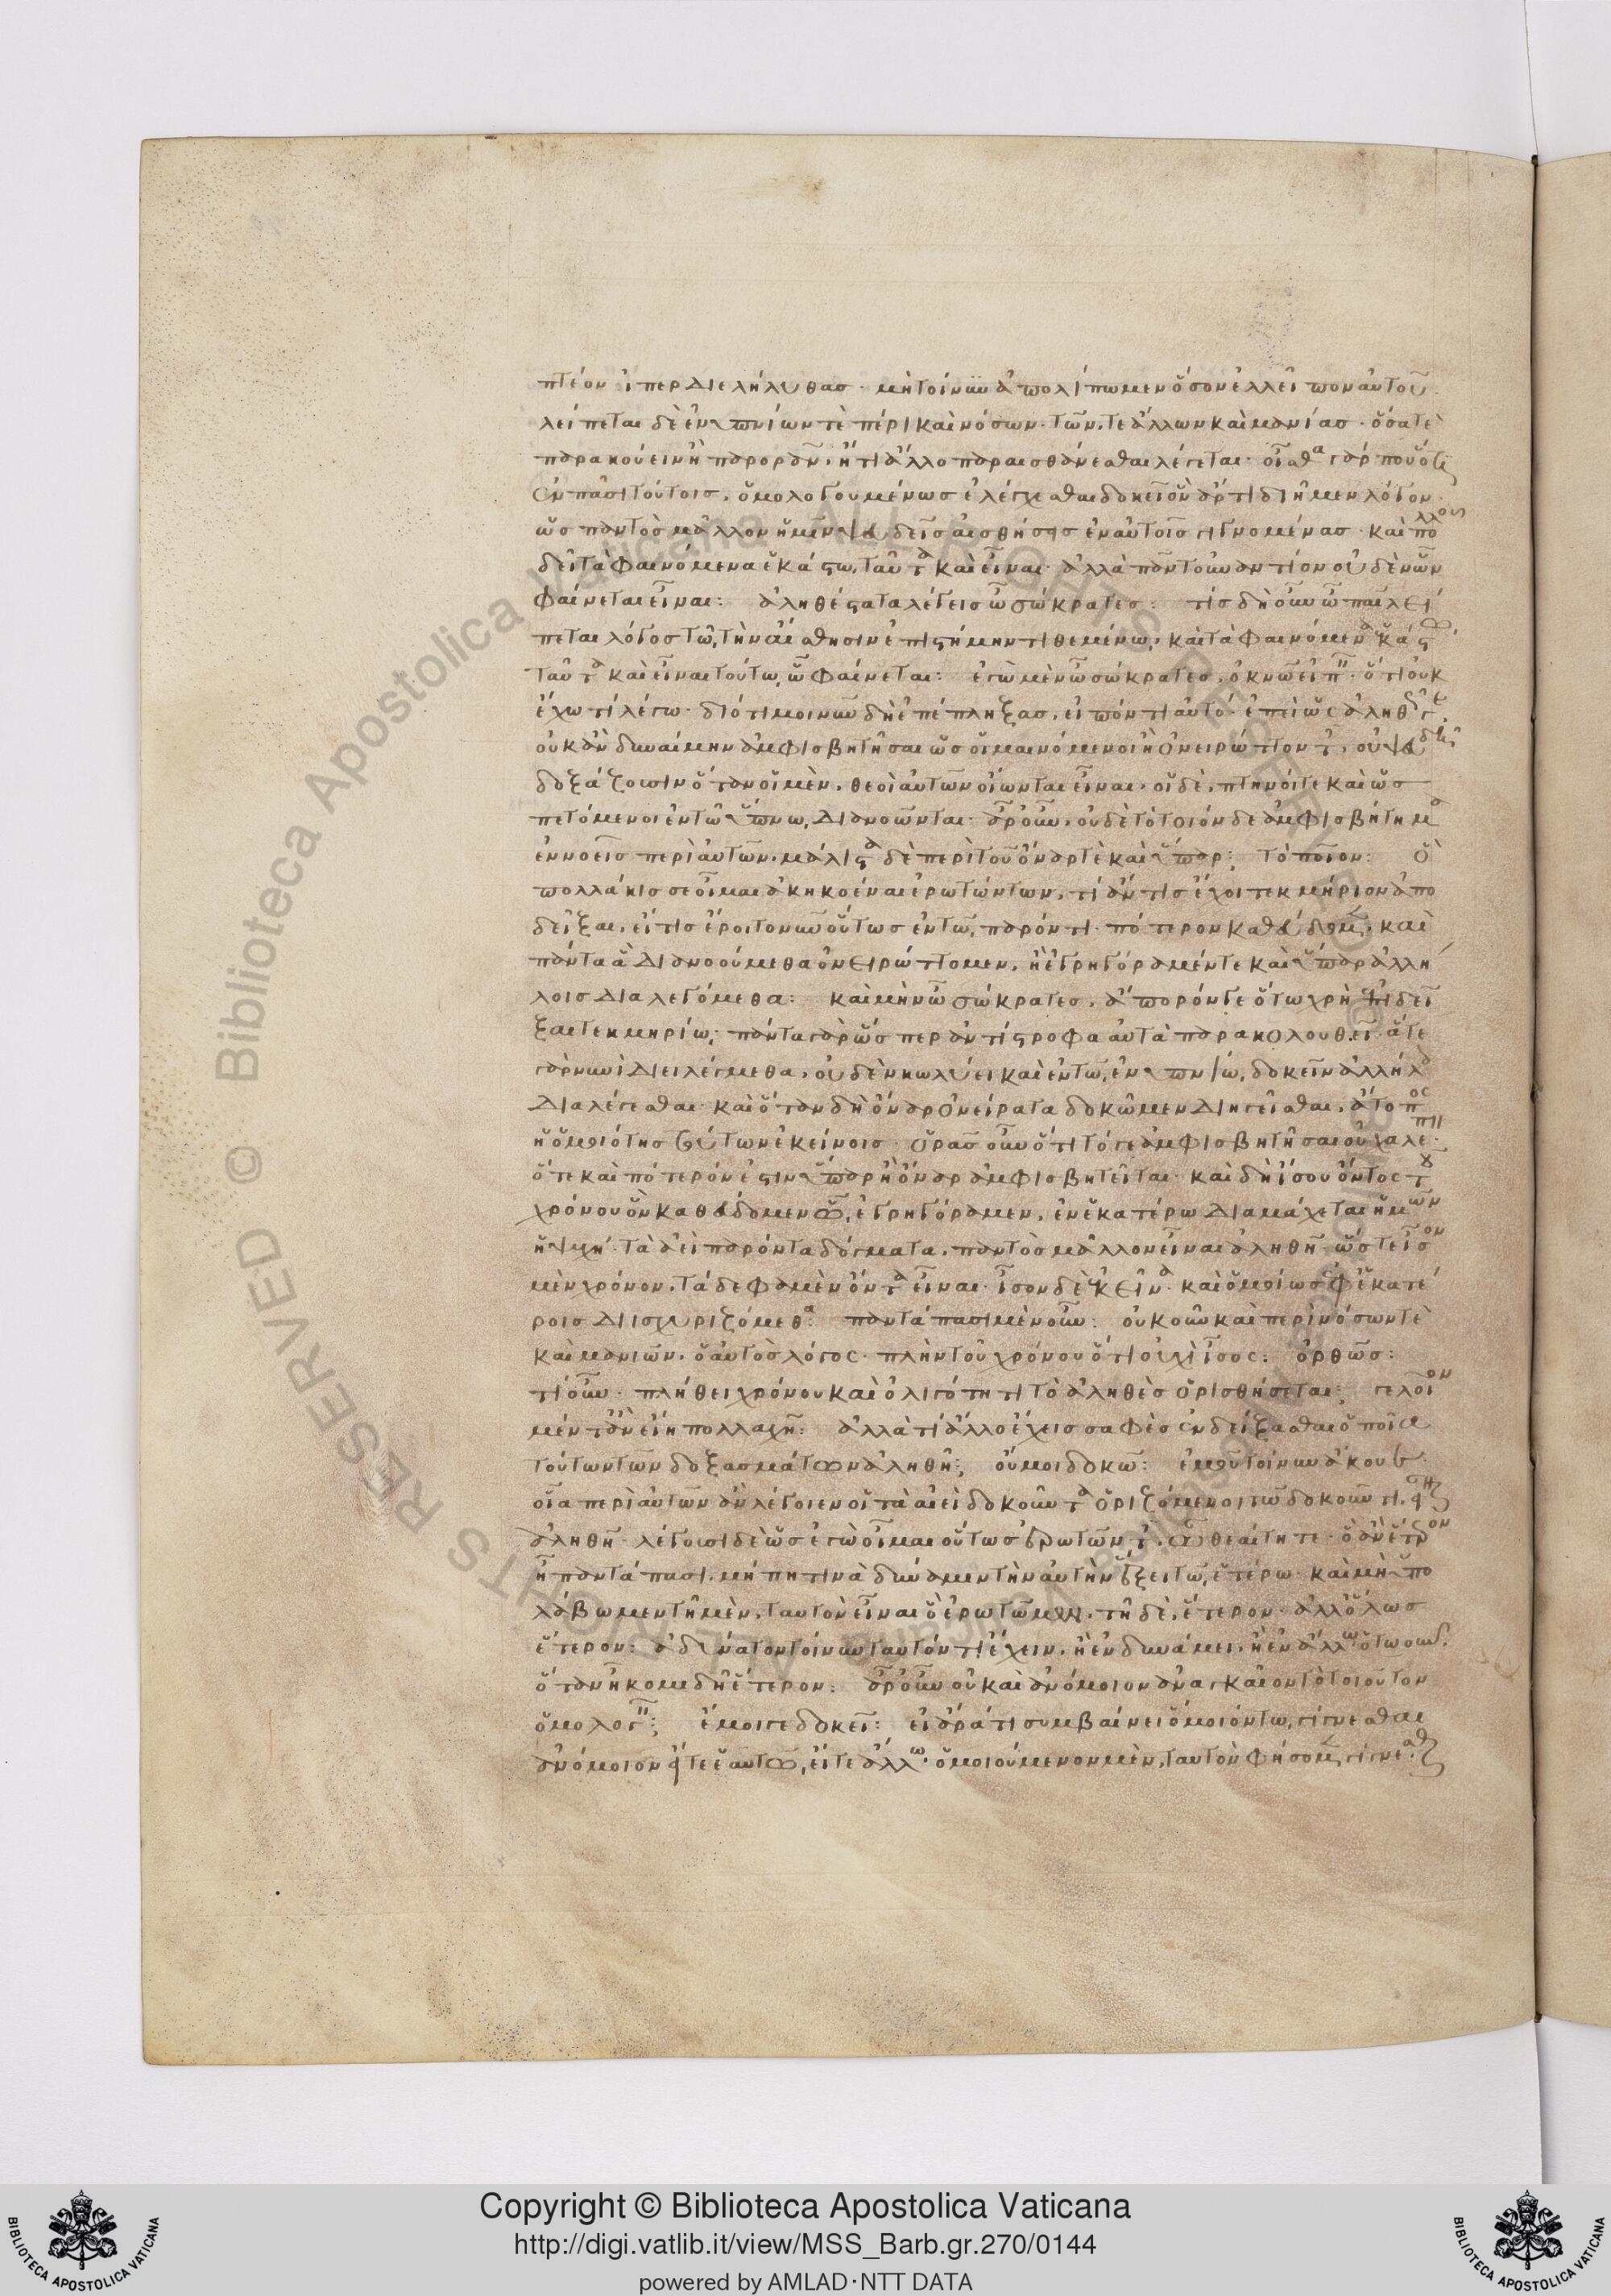 πτέον ᾗπερ διελήλυθας· μὴ τοίνυν ἀπολίπωμεν ὅσον ἐλλεῖπον αὐτοῦ.
λείπεται δὲ ἐνυπνίων τὲ πέρι καὶ νόσων· τῶν, τε ἄλλων καὶ μανίας· ὅσα τὲ
παρακούειν ἢ παρορᾶν, ἤ τι ἄλλο παραισθάνεσθαι λέγεται· οἶσθα γάρ που ὅτι
ἐν πᾶσι τούτοις, ὁμολογουμένως ἐλέγχεσθαι δοκεῖ ὃν ἄρτι διῇμεν λόγον·
ὡς παντὸς μᾶλλον ἡμῖν ψευδεῖς αἰσθήσεις ἐν αὐτοῖς γιγνομένας· καὶ πολλοῦ
δεῖ τὰ φαινόμενα ἑκάστω, ταῦτα καὶ εἶναι· ἀλλὰ πᾶν τοὐναντίον οὐδὲν ὧν
φαίνεται εἶναι: ἀληθέστατα λέγεις ὦ σώκρατες: τίς δὴ οὖν ὦ παῖ λεί
πεται λόγος τῶ, τὴν αἴσθησιν ἐπιστήμην τιθεμένω, καὶ τὰ φαινόμενα ἑκάστω,
ταῦτα καὶ εἶναι τούτω, ὧ φαίνεται: ἐγὼ μὲν ὦ σώκρατες, ὀκνῶ εἰπεῖν· ὅτι οὐκ
ἔχω τί λέγω· διότι μοι νῦν δὴ ἐπέπληξας, εἰπόντι αὐτό· ἐπεὶ ὡς ἀληθῶς γε,
οὐκ ἂν δυναίμην ἀμφισβητῆσαι ὡς οἱ μαινόμενοι ἢ ὀνειρώττοντες, οὐ ψευδῆ
δοξάζουσιν ὅταν οἱ μὲν, θεοὶ αὐτῶν οἴωνται εἶναι, οἱ δὲ, πτηνοί τε καὶ ὡς
πετόμενοι ἐν τῶ ὕπνω, διανοῶνται· ἆρ' οὖν, οὐδὲ τὸ τοιόνδε ἀμφισβήτημα
ἐννοεῖς περὶ αὐτῶν, μάλιστα δὲ περὶ τοῦ ὄναρ τὲ καὶ ὕπαρ: τὸ ποῖον: ὃ
πολλάκις σε οἶμαι ἀκηκοέναι ἐρωτώντων, τί ἄν τις ἔχοι τεκμήριον ἀπο
δεῖξαι, εἴ τις ἔροιτο νῦν οὕτως ἐν τῶ, παρόντι· πότερον καθεύδομεν, καὶ
πάντα ἃ διανοούμεθα ὀνειρώττομεν, ἢ ἐγρηγόραμέν τε καὶ ὕπαρ ἀλλή
λοις διαλεγόμεθα: καὶ μὴν ὦ σώκρατες, ἄπορόν γε ὅτω χρὴ ἐπιδεῖ
ξαι τεκμηρίω· πάντα γὰρ ὥσπερ ἀντίστροφα αὐτὰ παρακολουθεῖ· ἅ τε
γὰρ νυνὶ διειλέγμεθα, οὐδὲν κωλύει καὶ ἐν τῶ, ἐνυπνίω, δοκεῖν ἀλλήλοις
διαλέγεσθαι· καὶ ὅταν δὴ ὄναρ ὀνείρατα δοκῶμεν διηγεῖσθαι, ἄτοπος
ἡ ὁμοιότης τούτων ἐκείνοις· ὁρᾶς οὖν ὅτι τό γε ἀμφισβητῆσαι οὐ χαλεπόν·
ὅτε καὶ πότερόν ἐστιν ὕπαρ ἢ ὄναρ ἀμφισβητεῖται· καὶ δὴ ἴσου ὄντος τοῦ
χρόνου ὃν καθεύδομεν ᾧ, ἐγρηγόραμεν, ἐν ἑκατέρω διαμάχεται ἡμῶν
ἡ ψυχή· τὰ ἀεὶ παρόντα δόγματα, παντὸς μᾶλλον εἶναι ἀληθῆ· ὥστε ἴσον
μὲν χρόνον, τάδε φαμὲν ὄντα εἶναι· ἴσον δὲ ἐκεῖνα· καὶ ὁμοίως ἐφ' ἑκατέ
ροις διισχυριζόμεθα: παντάπασι μὲν οὖν: οὐκοῦν καὶ περὶ νόσων τὲ
καὶ μανιῶν, ὁ αὐτὸς λόγος· πλὴν τοῦ χρόνου ὅτι οὐχὶ ἴσος: ὀρθῶς:
τί οὖν· πλήθει χρόνου καὶ ὀλιγότητι τὸ ἀληθὲς ὁρισθήσεται: γελοῖον
μέντ' ἂν εἴη πολλαχῆ: ἀλλά τι ἄλλο ἔχεις σαφὲς ἐνδείξασθαι ὁποῖα
τούτων τῶν δοξασμάτων ἀληθῆ: οὔ μοι δοκῶ: ἐμοῦ τοίνυν ἄκουε
οἷα περὶ αὐτῶν ἂν λέγοιεν οἱ τὰ αἰεὶ δοκοῦντα ὁριζόμενοι τῶ δοκοῦντι, εἶναι
ἀληθῆ· λέγουσι δὲ ὡς ἐγὼ οἶμαι οὕτως ἐρωτῶντες, ὦ θεαίτητε· ὃ ἂν ἕτερον
ἦ παντάπασι, μή πή τινα δύναμιν τὴν αὐτὴν ἕξει τῶ, ἑτέρω· καὶ μὴ ὑπο
λάβωμεν τῆ μὲν, ταυτὸν εἶναι ὃ ἐρωτῶμεν, τῆ δὲ, ἕτερον· ἀλλ' ὅλως
ἕτερον: ἀδύνατον τοίνυν ταυτόν τι ἔχειν, ἢ ἐν δυνάμει, ἢ ἐν ἄλλω ὁτωοῦν,
ὅταν ἦ κομιδῆ ἕτερον: ἆρ' οὖν οὐ καὶ ἀνόμοιον ἀναγκαῖον τὸ τοιοῦτον
ὁμολογεῖν: ἔμοιγε δοκεῖ: εἰ ἄρα τι συμβαίνει ὅμοιόν τω, γίγνεσθαι
ἀνόμοιον εἴτε ἑαυτῶ, εἴτε ἄλλω· ὁμοιούμενον μὲν, ταυτὸν φήσομεν γίγνεσθαι
Copyright © Biblioteca Apostolica Vaticana
http://digi.vatlib.it/view/MSS_Barb.gr.270/0144
powered by AMLAD·NTT DATA
BIBLIOTECA APOSTOLICA VATICANA
BIBLIOTECA APOSTOLICA VATICANA
© Biblioteca Apostolica Vaticana ALL RIGHTS RESERVED